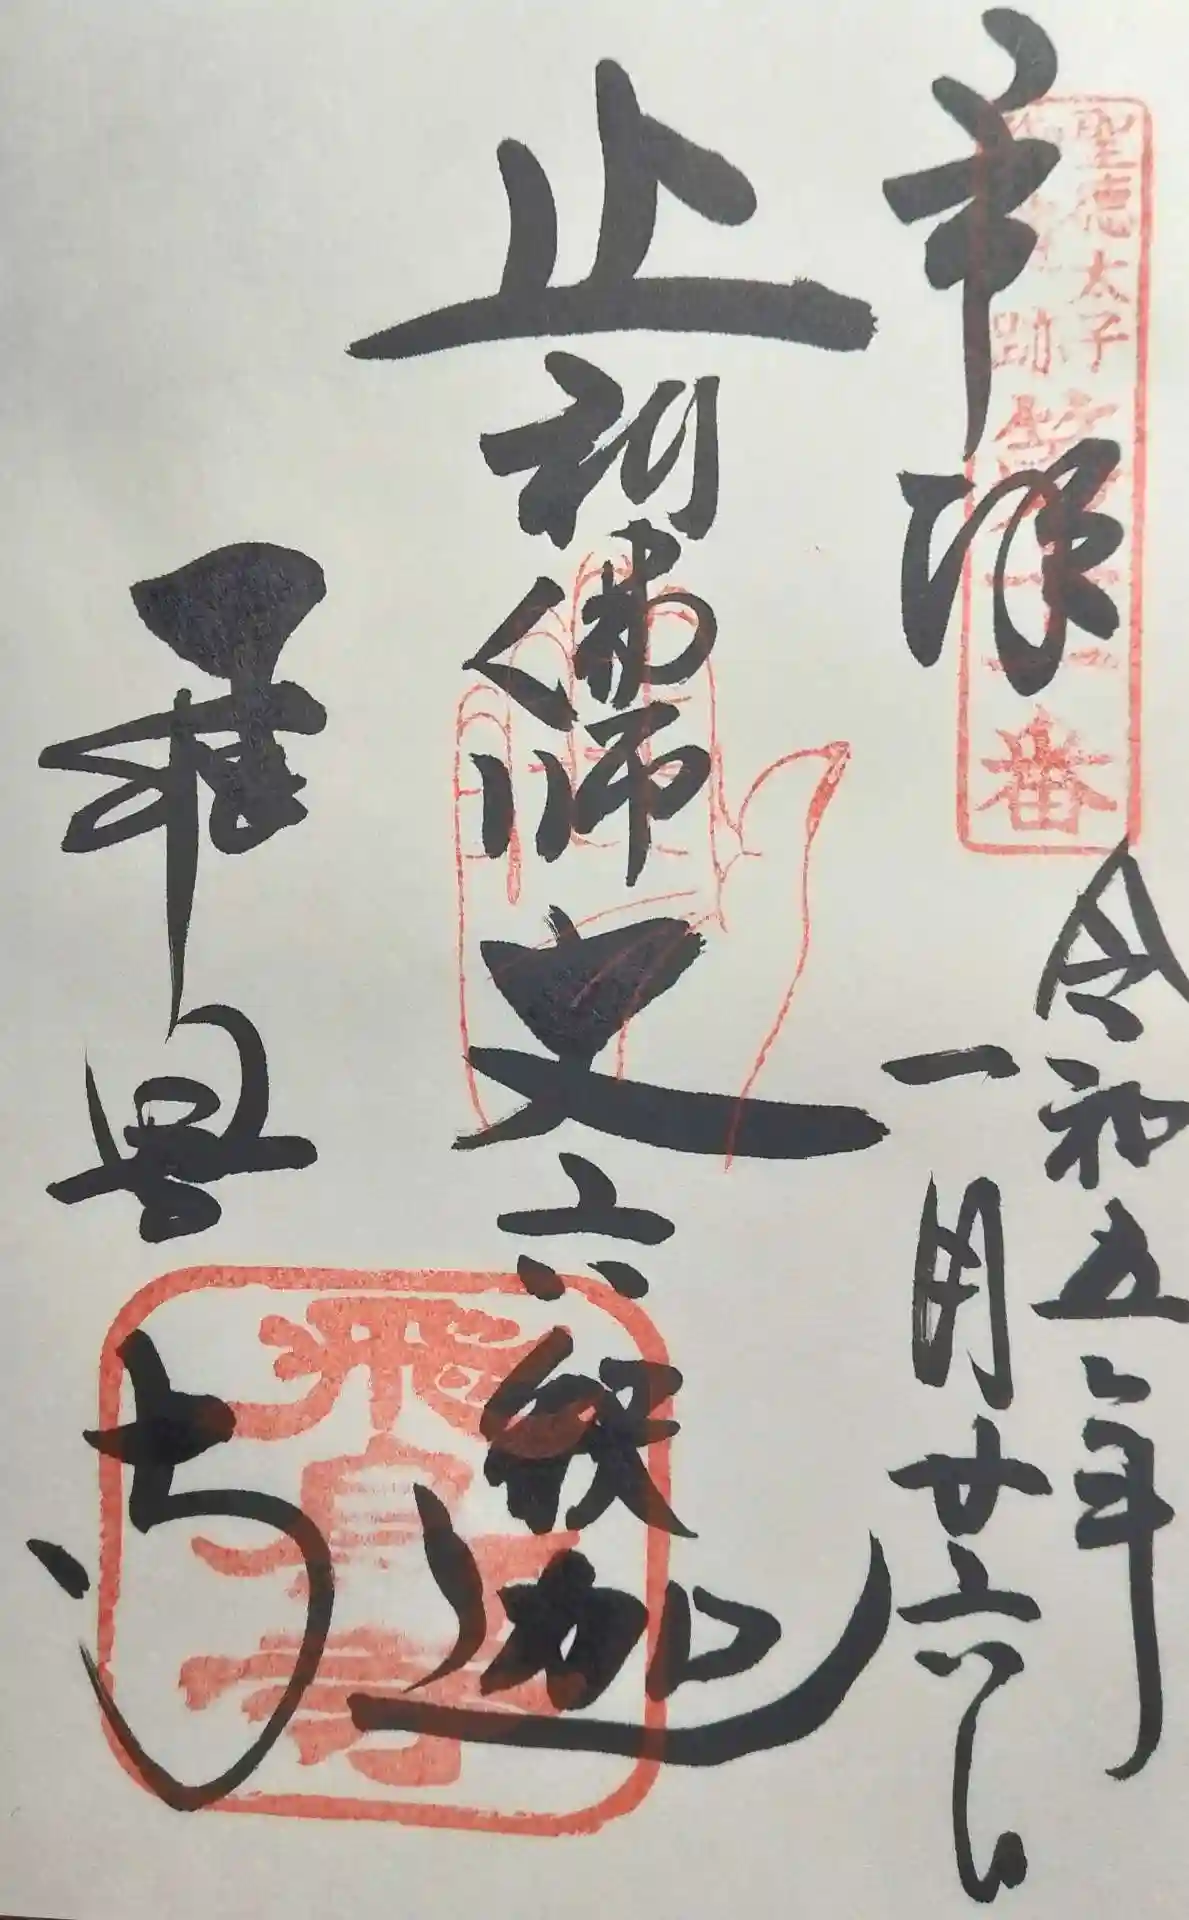 奉拝
聖徳太子
跡
第十一番
令和五年
一月廿六日
止利佛師
丈六釈迦
飛鳥寺
飛鳥寺